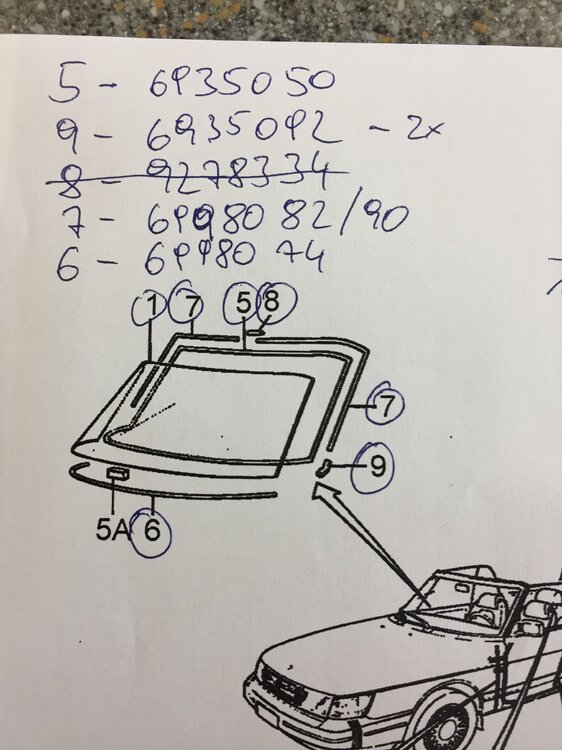 5 - 6935050
9 - 6935092 - 2x
8 - 9278334
7 - 69980 82/90
6 - 69980 74
1 7 5 8
7
9
5A 6